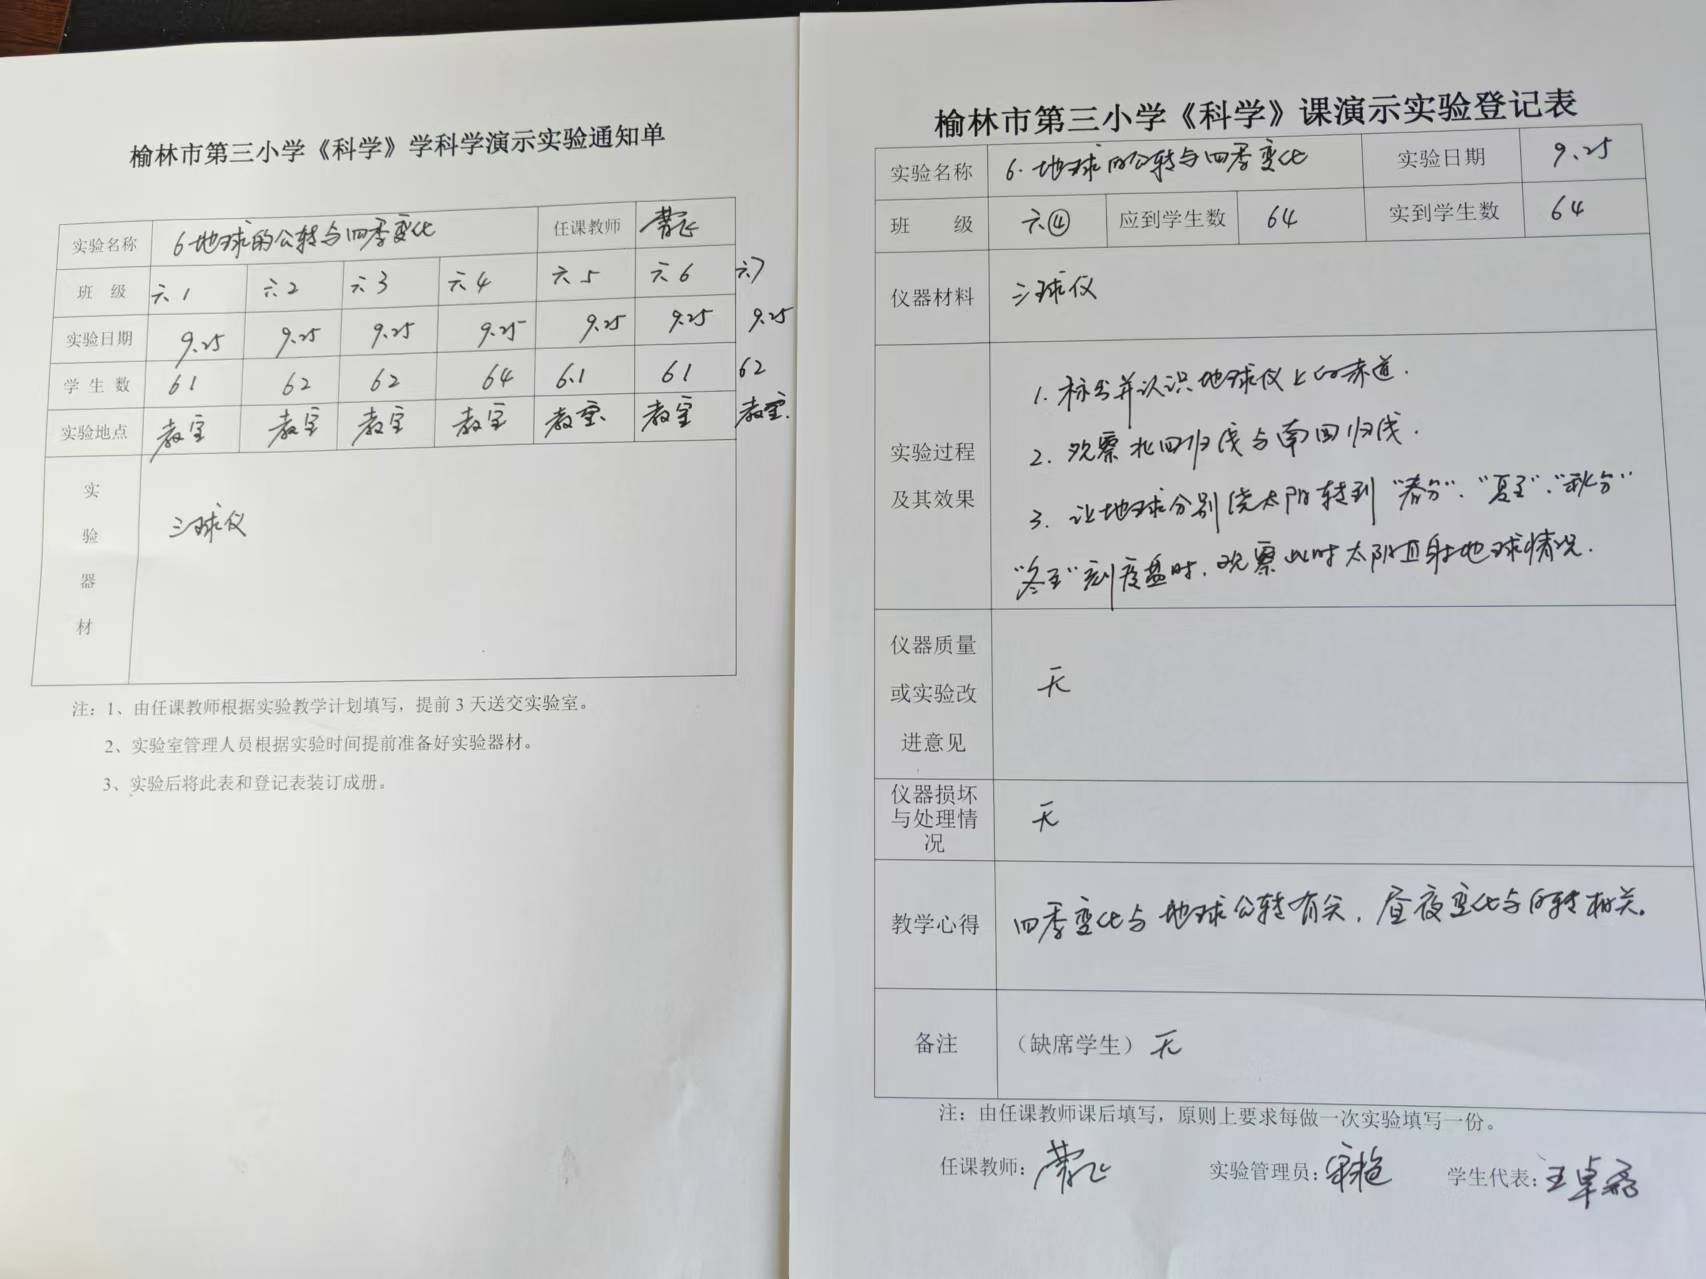 榆林市第三小学《科学》学科学演示实验通知单
实验名称 6 地球的公转与四季变化 任课教师
班 级 六1 六2 六3 六4 六5 六6 六7
实验日期 9.25 9.25 9.25 9.25 9.25 9.25 9.25
学 生 数 61 62 62 64 61 61 62
实验地点 教室 教室 教室 教室 教室 教室 教室.
实
验
器
材
三球仪
注：1、由任课教师根据实验教学计划填写，提前 3 天送交实验室。
2、实验室管理人员根据实验时间提前准备好实验器材。
3、实验后将此表和登记表装订成册。
榆林市第三小学《科学》课演示实验登记表
实验名称 6. 地球的公转与四季变化 实验日期 9.25
班 级 六④ 应到学生数 64 实到学生数 64
仪器材料 三球仪
实验过程
及其效果
1. 标出并认识地球仪上的赤道.
2. 观察北回归线与南回归线.
3. 让地球分别绕太阳转到"春分"、"夏至"、"秋分"
"冬至"刻度盘时. 观察此时太阳直射地球情况.
仪器质量
或实验改
进意见
无
仪器损坏
与处理情
况
无
教学心得 四季变化与地球公转有关，昼夜变化与自转相关。
备注 （缺席学生）无
注：由任课教师课后填写，原则上要求每做一次实验填写一份。
任课教师： 实验管理员： 学生代表：王卓